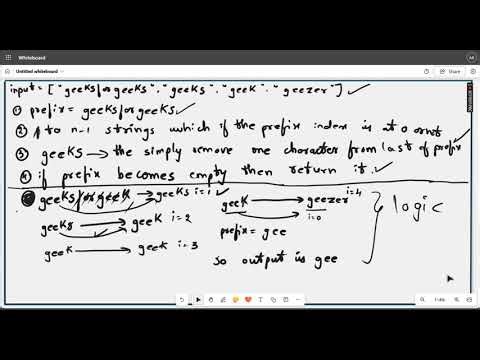 Whiteboard
Untitled whiteboard
input = ["geeksforgeeks", "geeks", "geek", "geezer"]
① prefix = geeksforgeeks
② 1 to n-1 strings which if the prefix index is at 0 or not
③ geeks → the simply remove one character from last of prefix
④ if prefix becomes empty then return it.
geeksforgeek → geeks i=1
geeks → geek i=2
geek → geek i=3
geek → geezer i=4
i=0
prefix = gee
so output is gee
logic